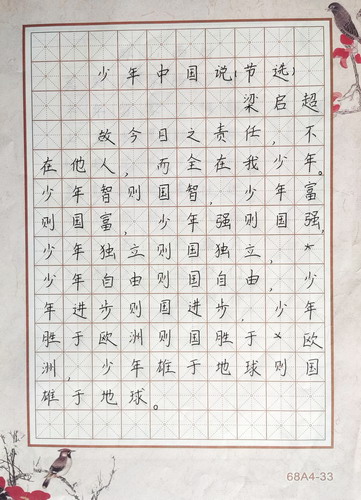 少年中国说(节选)
梁启超
故今日之责任,不
在他人,而全在我少年。
少年智则国智,少年富
则国富,少年强则国强,
少年独立则国独立,
少年自由则国自由,少
年进步则国进步,少年
胜于欧洲则国胜于欧
洲,少年雄于地球则国
雄于地球。
68A4-33